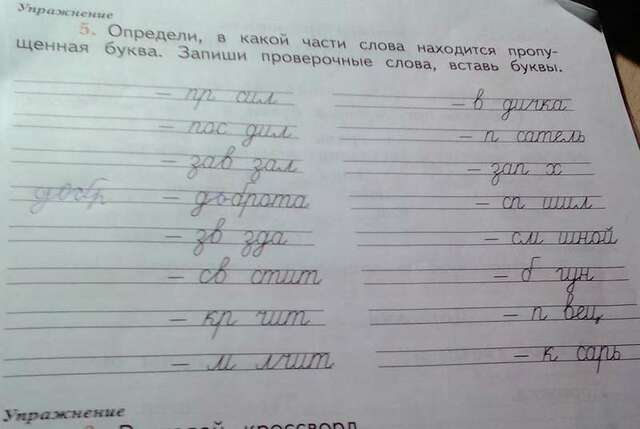 Упражнение
5. Определи, в какой части слова находится пропу-
щенная буква. Запиши проверочные слова, вставь буквы.
– пр сил
– в дичка
– пос дил
– п сатель
– зав зал
– зап х
добр – доброта
– сп шил
– зв зда
– см шной
– св стит
– б гун
– кр чит
– п вец
– м лчит
– к сарь
Упражнение
кроссворд